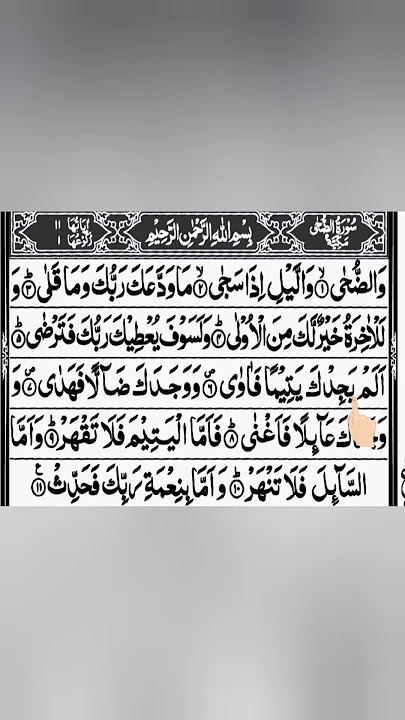 سُوْرَةُ الضُّحٰى مَكِّيَّةٌ
بِسْمِ اللهِ الرَّحْمٰنِ الرَّحِيْمِ
اٰيَاتُهَا ١١ رُكُوْعُهَا ١
وَالضُّحٰى ۙ‏﴿۱﴾ وَالَّيْلِ اِذَا سَجٰى ۙ‏﴿۲﴾ مَا وَدَّعَكَ رَبُّكَ وَمَا قَلٰى ؕ‏﴿۳﴾ وَ
لَلْاٰخِرَةُ خَيْرٌ لَّكَ مِنَ الْاُوْلٰى ؕ‏﴿۴﴾ وَلَسَوْفَ يُعْطِيْكَ رَبُّكَ فَتَرْضٰى ؕ‏﴿۵﴾
اَلَمْ يَجِدْكَ يَتِيْمًا فَاٰوٰى ‏﴿۶﴾ وَوَجَدَكَ ضَآلًّا فَهَدٰى ‏﴿۷﴾ وَ
عَآئِلًا فَاَغْنٰى ؕ‏﴿۸﴾ فَاَمَّا الْيَتِيْمَ فَلَا تَقْهَرْ ؕ‏﴿۹﴾ وَاَمَّا
السَّآئِلَ فَلَا تَنْهَرْ ؕ‏﴿۱۰﴾ وَاَمَّا بِنِعْمَةِ رَبِّكَ فَحَدِّثْ ‏﴿۱۱﴾